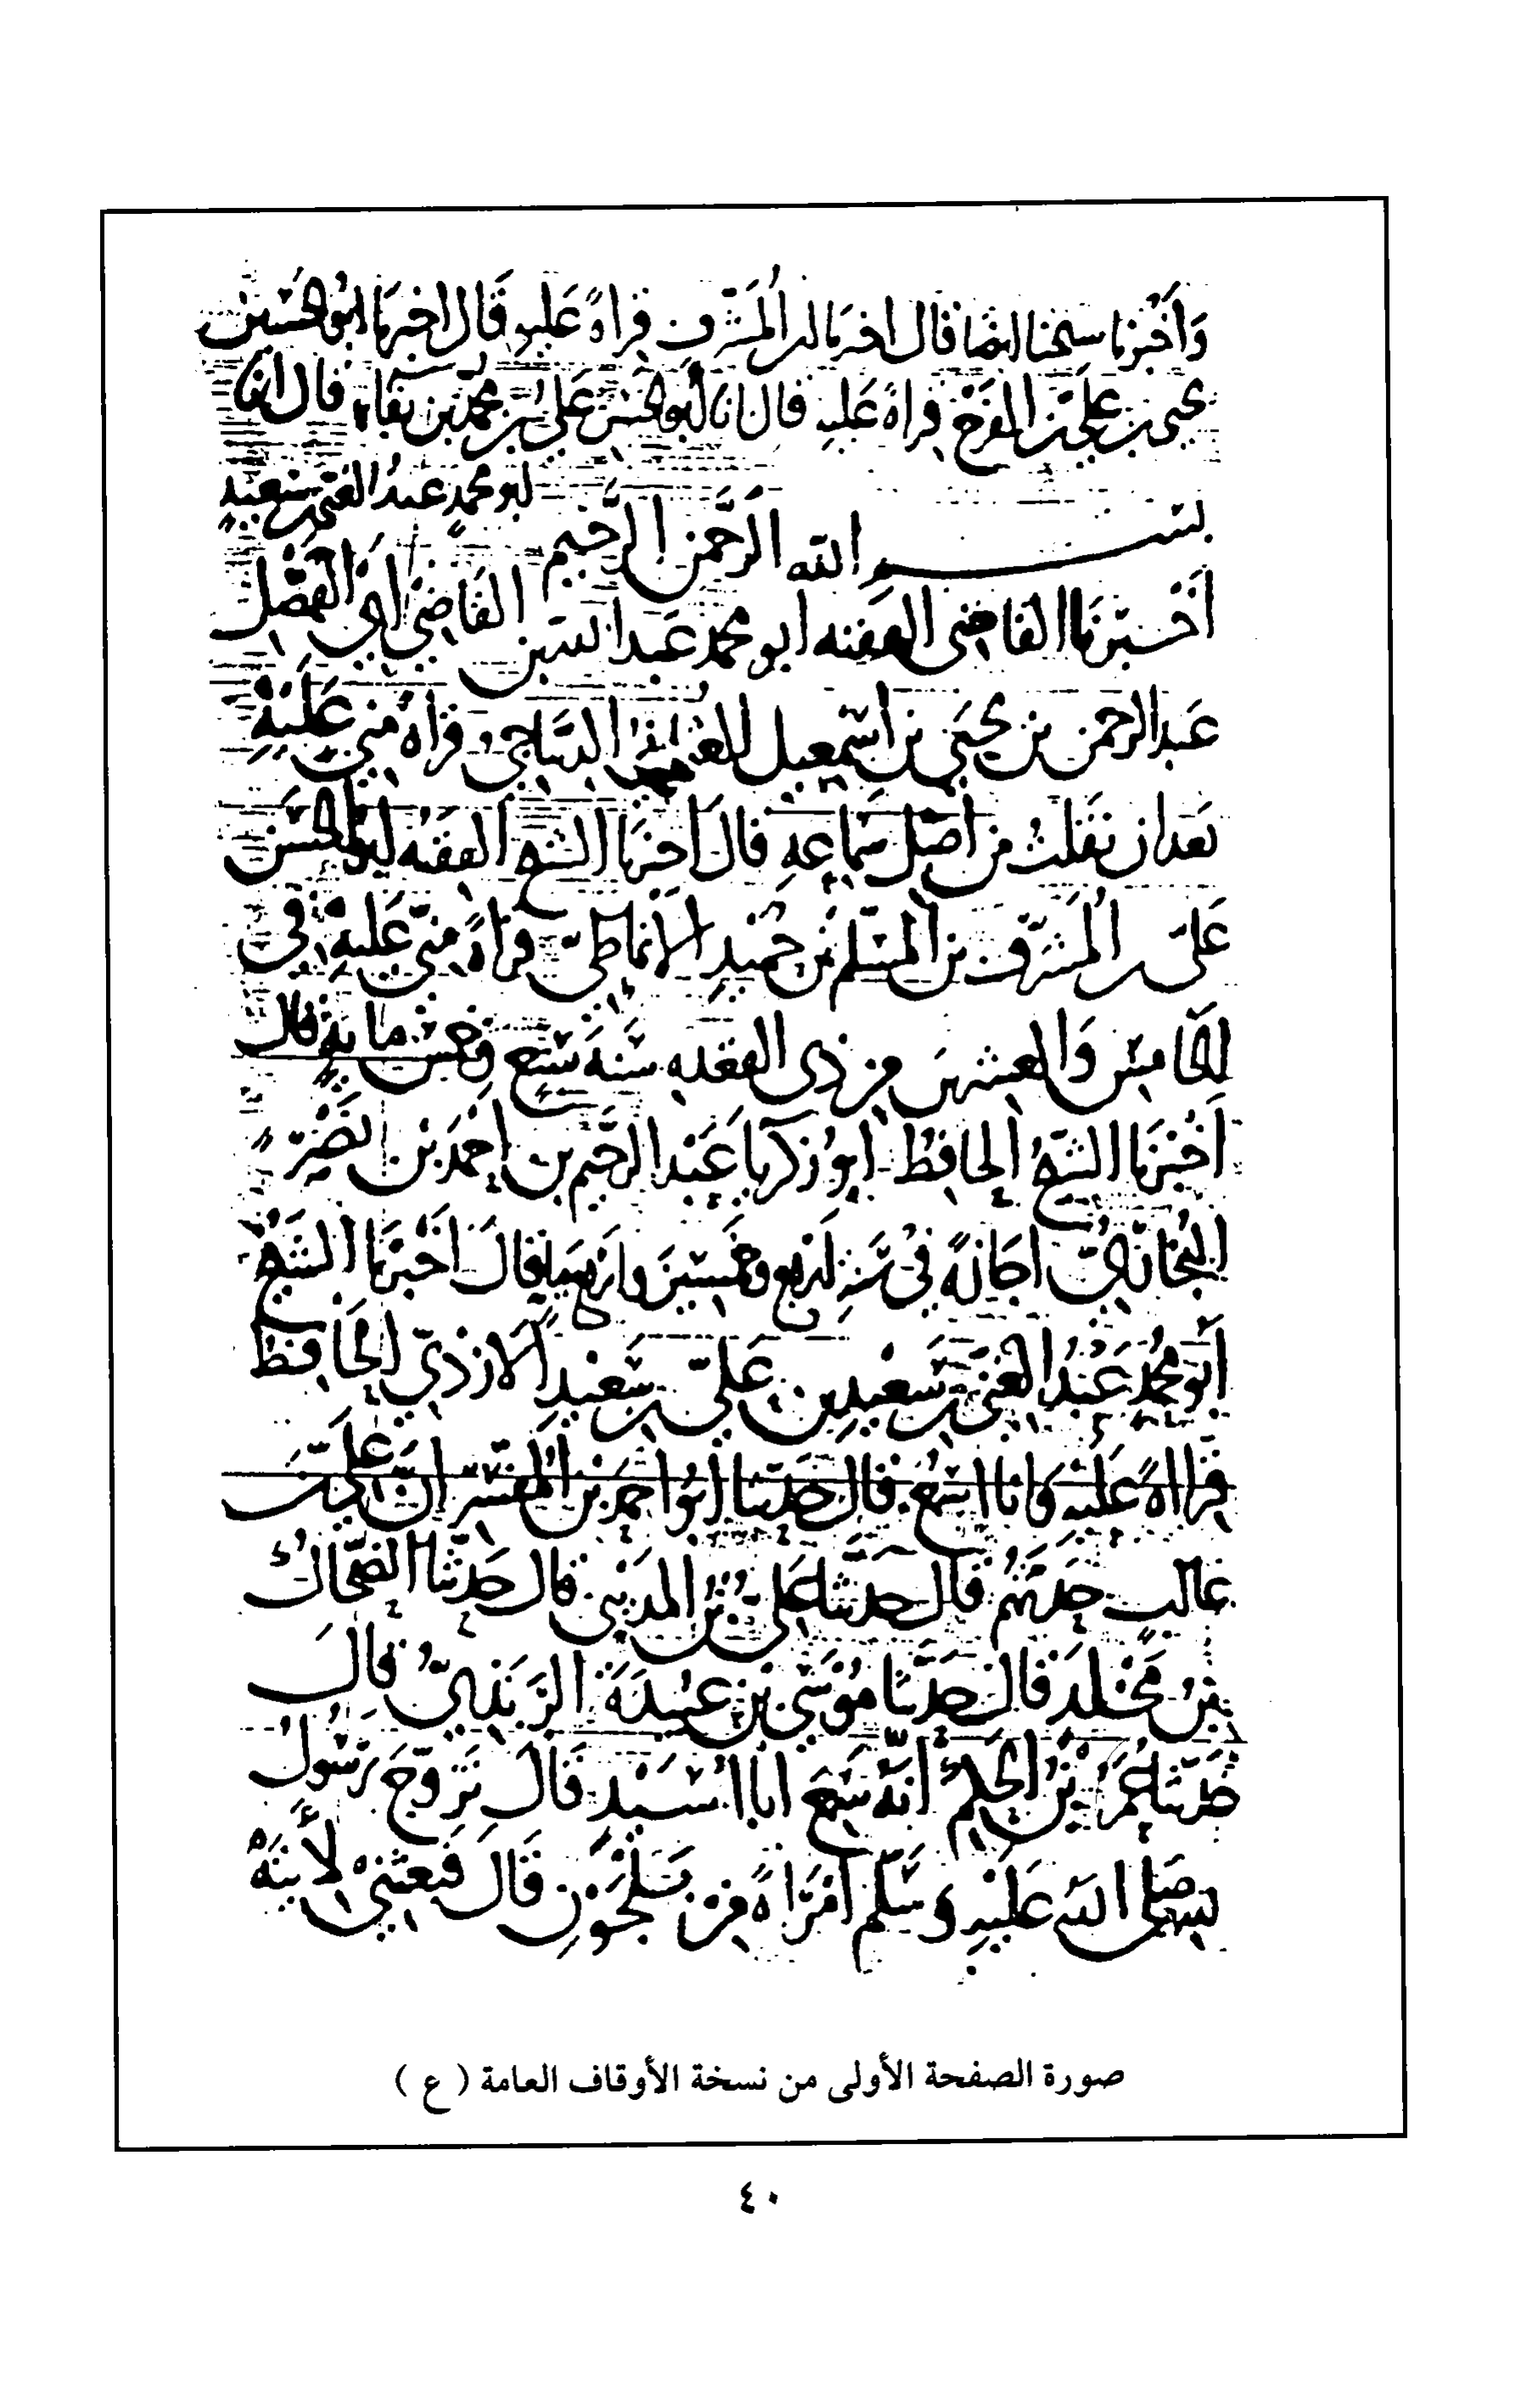 وَأَخْبَرنا شيخنا ايضا قال اخبرنا ابن المُشَرّف قراةً عَليهِ قَال اخبرنا ابوُالحُسَين
يحيى بن عليّ بن الفرج قراةً عَليهِ قال انا ابوُالحسَن عَلي بن محمد بن بَقاء قال انا
ابو محمدٍ عبدُ الغنى بن سَعِيدٍ
بســـــم الله الرَّحمن الرَّحيم
أخْبَرَنَا القاضى الفقيه ابو محمد عَبدالله بن القَاضِي أبي الفَضْل
عَبدالرحمن بن يحيَى بن اسْمعيل الديبَاجي قراةً مني عَلَيْهِ
بَعدان نقلتُ من أصْلِ سَمَاعِهِ قالَ أخبرَنا الشيخ الفَقيهُ ابوُالحسَن
عَلىّ بن المُشَرّف بن المُسَلم بن حمُيدِ الأنماطىّ قراةً منىّ عَليهِ فى
الخَامِسِ وَالعشرينَ من ذى القعْدهِ سَنهَ سَبْعٍ وَخمسُ مايةٍ قال
أَخْبَرنَا الشَيْخُ الحافِظُ ابوُ زكريا عَبْد الرَّحيم بن احْمَد بن نَصْرٍ
البُخارِيّ اجَازةً فىُ سَنةِ ارْبَع وخَمْسِيْنَ وارْبعمايه قالَ اخْبَرنَا الشَيْخ
أبُو محُمَّد عَبْدُ الغَنىّ بن سَعيْدِ بن عَليّ بن سَعيْدٍ الأزْدىّ الحَافِظُ
قراةً عَلَيْهِ وَأنا اسْمَعُ قالَ حَدّثنا أبوُ احمَد بن المُفَسّر انّ عَلىّ بن
غالب حَدثَهُمْ قَالَ حَدثَنَا عَلىُّ بْنُ المدَيْنى قال حَدثَنَا الضَحَّاكُ
بنُ مَخْلَدَ قال حَدَّثَنا مُوْسَى بْن عُبيدَةَ الرَّبَذِيُّ قالَ
حَدثَنَا عُمَرُ بْنُ الحَكَمِ أنّهُ سَمِعَ أبَا اُسَيْدٍ قَالَ تَزَوّجَ رَسُولُ
الله صَلى اللهُ عَلَيْهِ وَسَلّمَ امْرَأةً مِنْ بَلجَوْنِ قَالَ فَبَعَثَنِىْ لأبنَهُ
صورة الصفحة الأولى من نسخة الأوقاف العامة ( ع )
٤٠